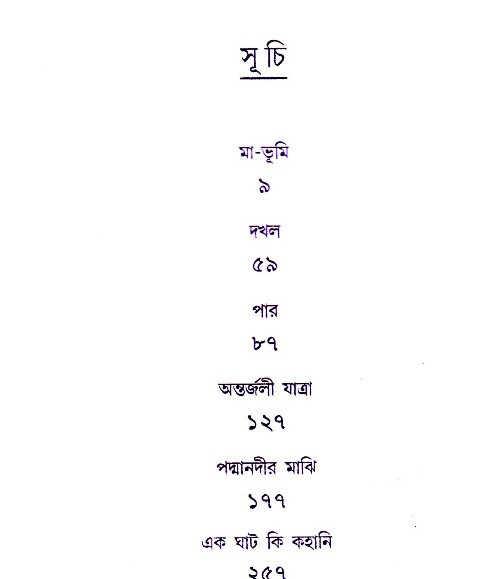 সূচি
মা-ভূমি
৯
দখল
৫৯
পার
৮৭
অন্তর্জলী যাত্রা
১২৭
পদ্মানদীর মাঝি
১৭৭
এক ঘাট কি কহানি
২৫৭